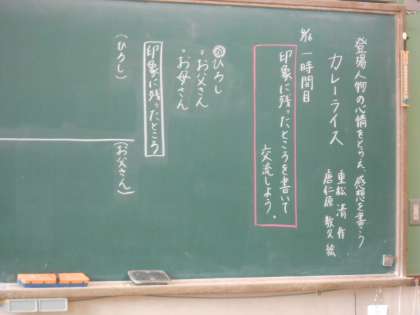 登場人物の心情をとらえ、感想を書こう
カレーライス
重松 清 作
唐仁原 教久 絵
一時間目
印象に残ったところを書いて
交流しよう。
ひろし
・お父さん
・お母さん
印象に残ったところ
（ひろし）
（お父さん）